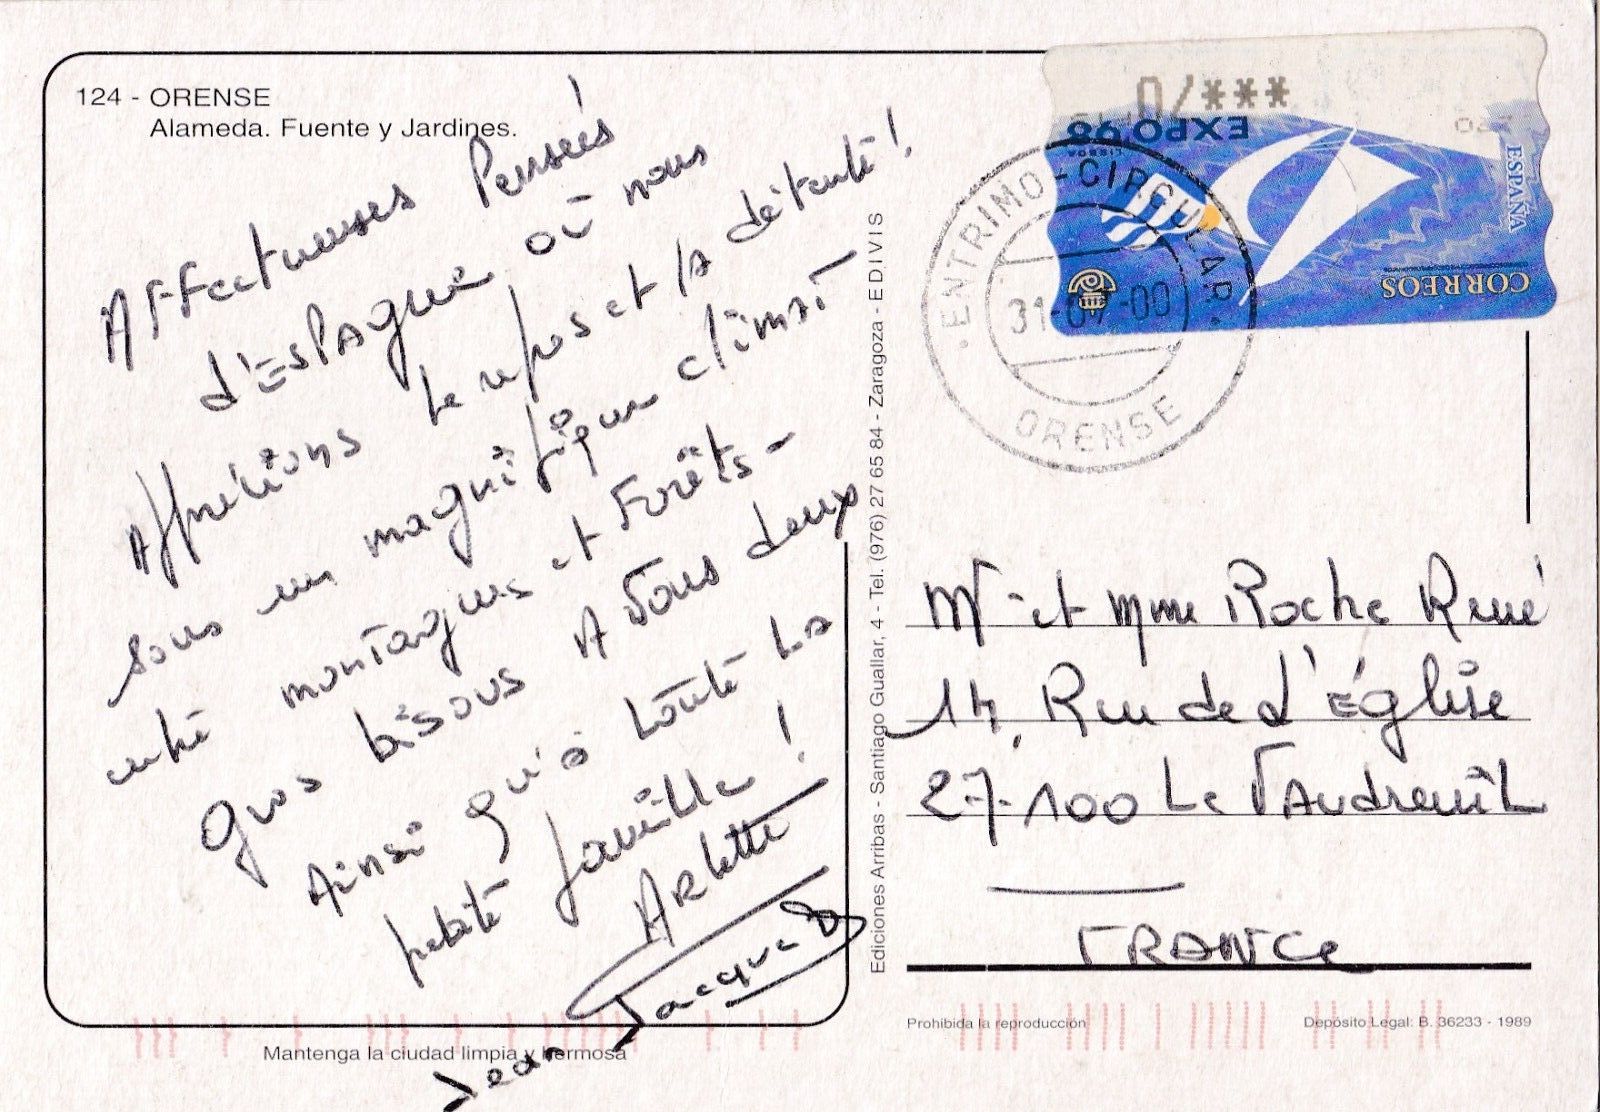 124 - ORENSE
Alameda. Fuente y Jardines.
Affectueuses Pensées
d'Espagne où nous
Apprécions le repos et la détente !
sous un magnifique climat
entre montagnes et Forêts -
Gros bisous A Vous deux
Ainsi qu'à toute la
petite famille !
Arlette
Jean Jacques
Mantenga la ciudad limpia y hermosa
Ediciones Arribas - Santiago Guallar, 4 - Tel. (976) 27 65 84 - Zaragoza - EDIVIS
0/***
EXPO 98
LISBOA
ESPAÑA
CORREOS
ENTRIMO - CIRCULAR.
31-07-00
ORENSE
Mr et Mme Roche René
14, Rue de l'église
27-100 Le Vaudreuil
FRANCE
Prohibida la reproducción
Depósito Legal: B. 36233 - 1989